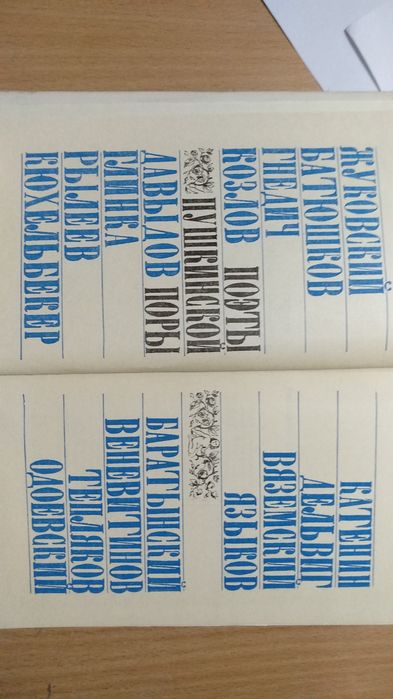 ЖУКОВСКИЙ
БАТЮШКОВ
ГНЕДИЧ
КОЗЛОВ ПОЭТЫ
ПУШКИНСКОЙ
ДАВЫДОВ ПОРЫ
ГЛИНКА
РЫЛЕЕВ
КЮХЕЛЬБЕКЕР
КАТЕНИН
ДЕЛЬВИГ
ВЯЗЕМСКИЙ
ЯЗЫКОВ
БАРАТЫНСКИЙ
ВЕНЕВИТИНОВ
ТЕПЛЯКОВ
ОДОЕВСКИЙ